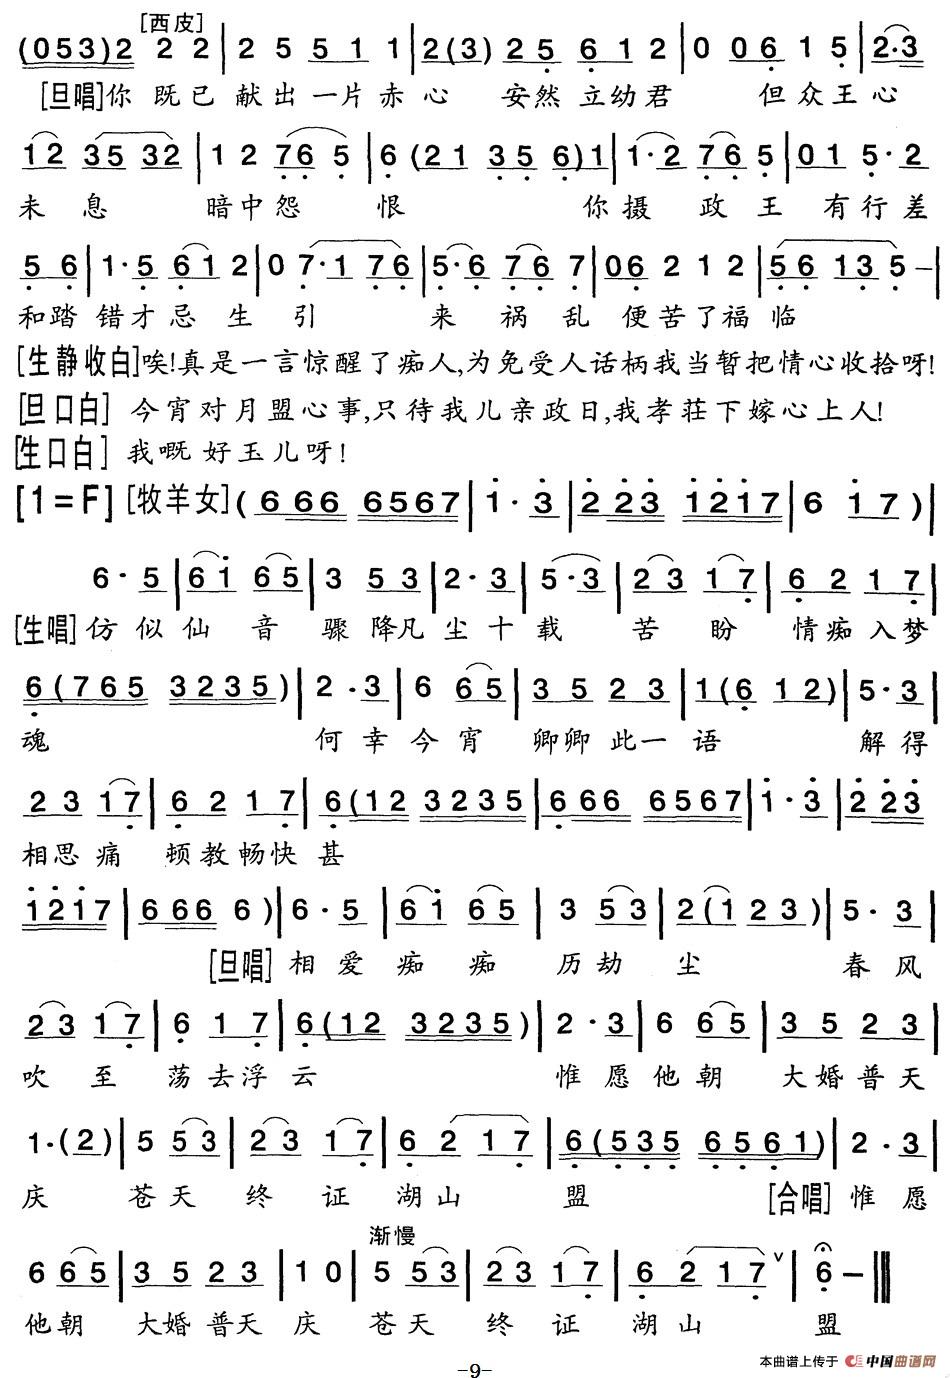 [西皮]
(053)2 2 2 | 2 5 5 1 1 | 2(3) 2 5 6 1 2 | 0 0 6 1 5 | 2·3
[旦唱]你 既已 献出 一片 赤心 安然 立幼君 但众王心
1 2 35 32 | 1 2 76 5 | 6 (21 356)1 | 1·2 76 5 | 01 5·2
未 息 暗中怨 恨 你摄 政 王 有行差
5 6 | 1·5 61 2 | 0 7·1 76 | 5·6 76 7 | 06 2 1 2 | 56 13 5 – |
和踏 错才忌 生 引 来 祸 乱 便苦了福 临
[生静收白]唉!真是一言惊醒了痴人,为免受人话柄我当暂把情心收拾呀!
[旦口白] 今宵对月盟心事,只待我儿亲政日,我孝荘下嫁心上人!
[生口白] 我嘅 好玉儿呀!
[1=F] [牧羊女] (6 66 6567 | 1·3 | 2 23 1217 | 6 17) |
6·5 | 61 65 | 3 53 | 2·3 | 5·3 | 23 17 | 6 2 1 7 |
[生唱]仿 似 仙 音 骤 降凡 尘 十 载 苦 盼 情痴入梦
6(765 3235) | 2·3 | 6 65 | 35 23 | 1(6 12) | 5·3 |
魂 何 幸 今 宵 卿卿 此一 语 解 得
23 17 | 62 17 | 6(12 3235 | 6 66 6567 | 1·3 | 2 23
相思 痛 顿教畅快 甚
1217 | 6 66 6) | 6·5 | 61 65 | 3 53 | 2(1 23) | 5·3 |
[旦唱] 相 爱 痴 痴 历 劫 尘 春 风
23 17 | 6 17 | 6(12 3235) | 2·3 | 6 65 | 35 23 |
吹 至 荡 去浮 云 惟 愿 他 朝 大婚 普天
1·(2) | 5 53 | 23 17 | 62 17 | 6(535 6561) | 2·3 |
庆 苍天 终 证 湖山 盟 [合唱] 惟 愿
渐慢
6 65 | 35 23 | 1 0 | 5 53 | 23 17 | 62 17 ∨ | 6 – ‖
他 朝 大婚 普天 庆 苍天 终 证 湖 山 盟
-9-
本曲谱上传于 中国曲谱网